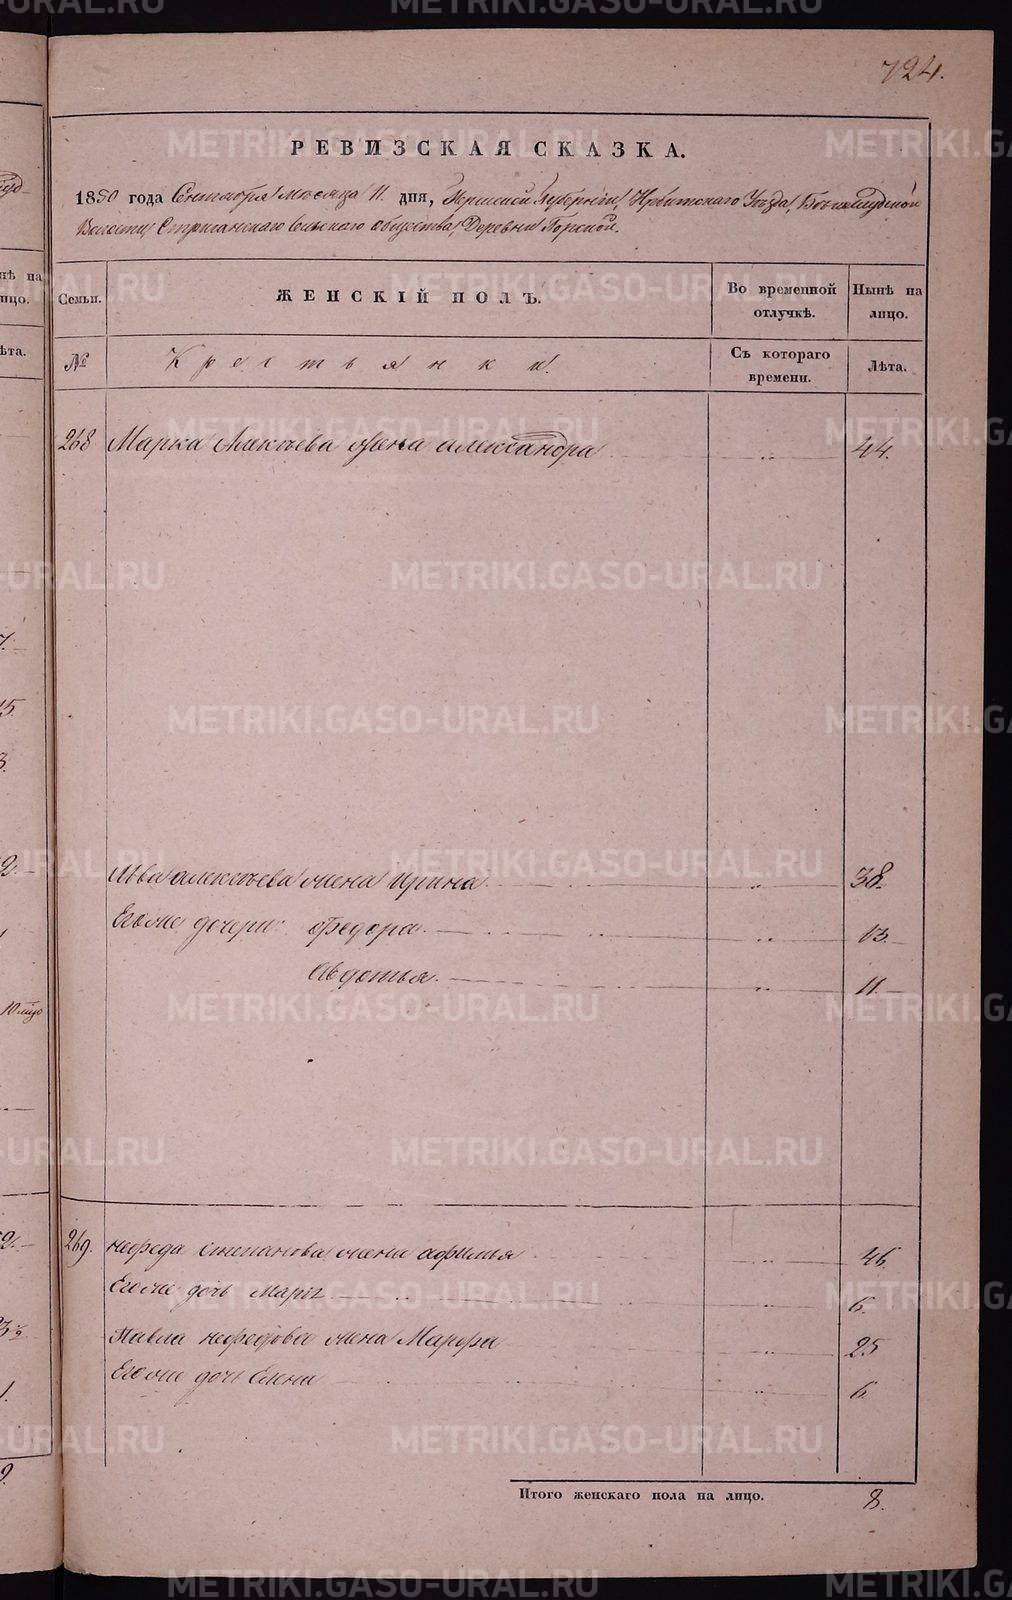 724.
РЕВИЗСКАЯ СКАЗКА.
1850 года Сентября месяца 11 дня, Пермской Губернии, Ирбитского Уезда, Белослудской
Волости, Стриганского Сельского общества, Деревни Горской.
Семьи. ЖЕНСКІЙ ПОЛЪ. Во временной отлучкѣ. Нынѣ на лицо.
№ Крестьянки. Съ котораго времени. Лѣта.
268 Марка Алексѣева жена александра 44.
Льва алексѣева жена Ирина 38.
Егоже дочери Федора 13.
Авдотья 11.
269. нефеда степанова жена афимья 46.
Егоже дочь Марія 6.
Павла нефедова жена Марфа 25
Егоже дочь Елена 6
Итого женскаго пола на лицо. 8.
METRIKI.GASO-URAL.RU